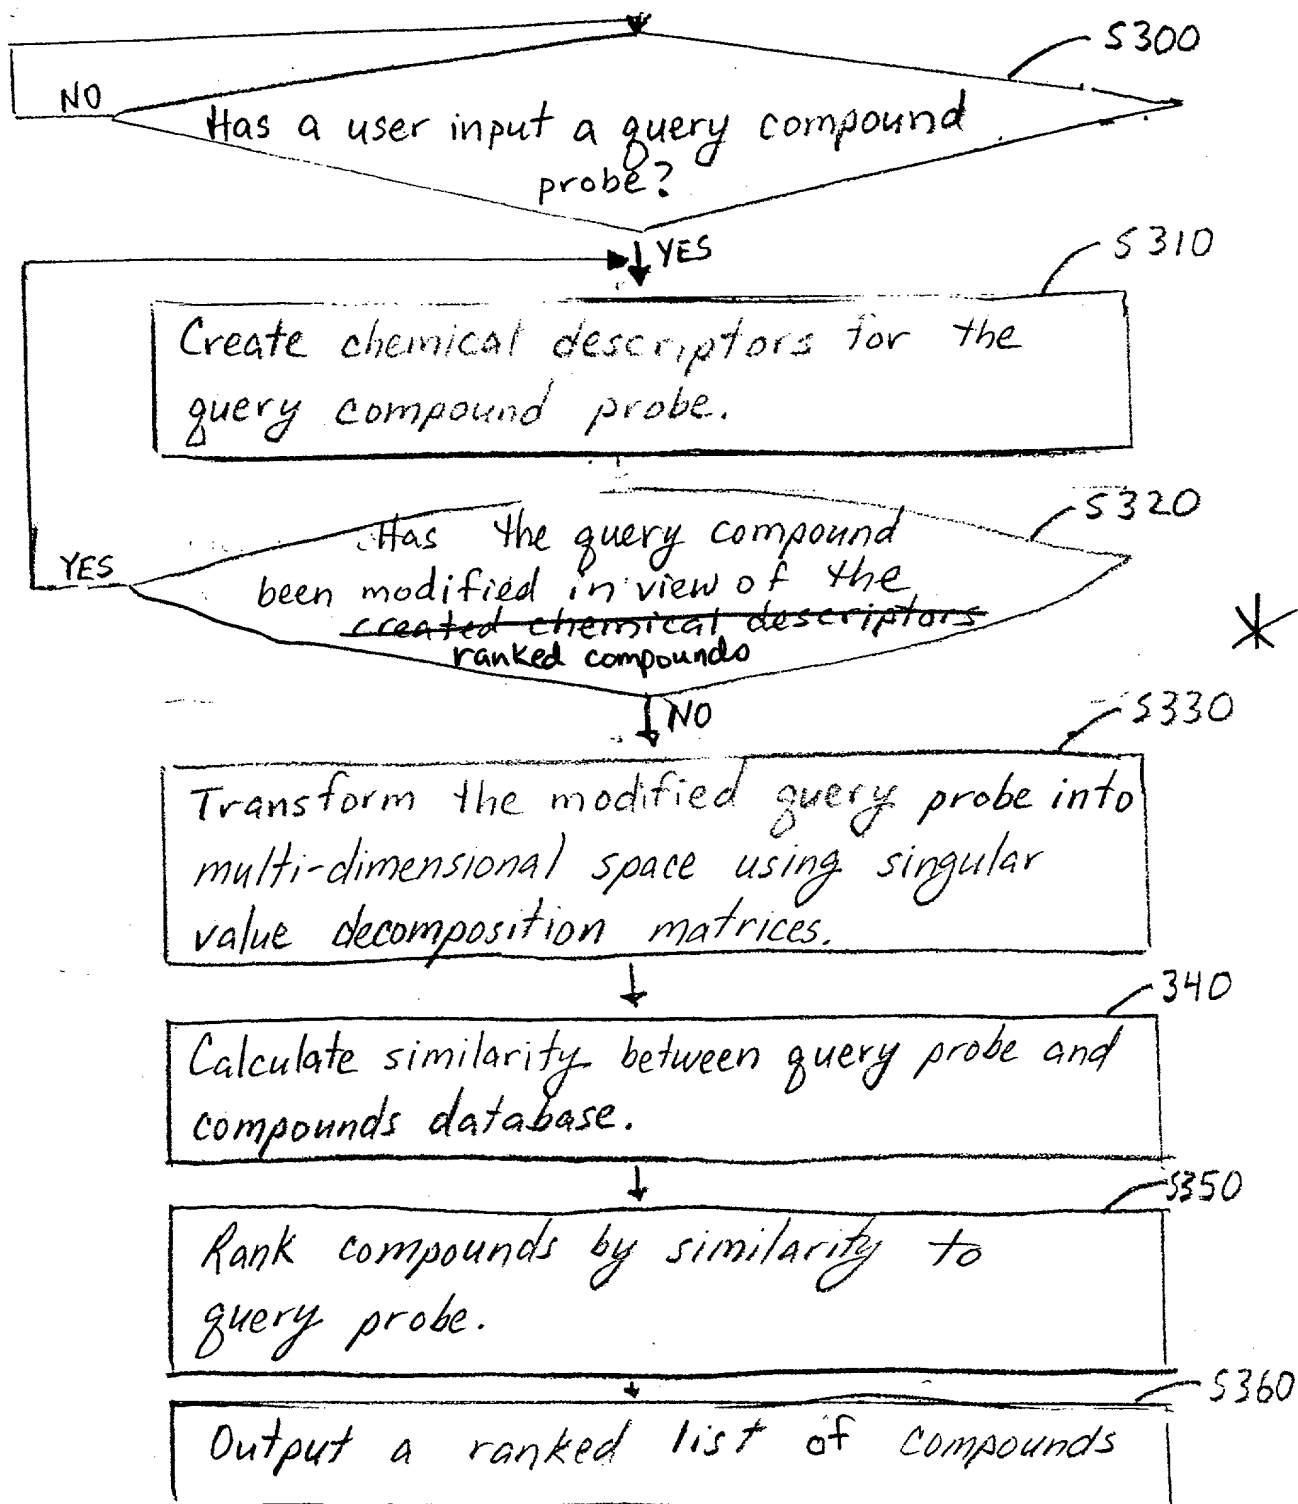 S300
NO
Has a user input a query compound
probe?
YES
S310
Create chemical descriptors for the
query compound probe.
S320
Has the query compound
been modified in view of the
created chemical descriptors
ranked compounds
YES
NO
S330
Transform the modified query probe into
multi-dimensional space using singular
value decomposition matrices.
340
Calculate similarity between query probe and
compounds database.
S350
Rank compounds by similarity to
query probe.
S360
Output a ranked list of compounds